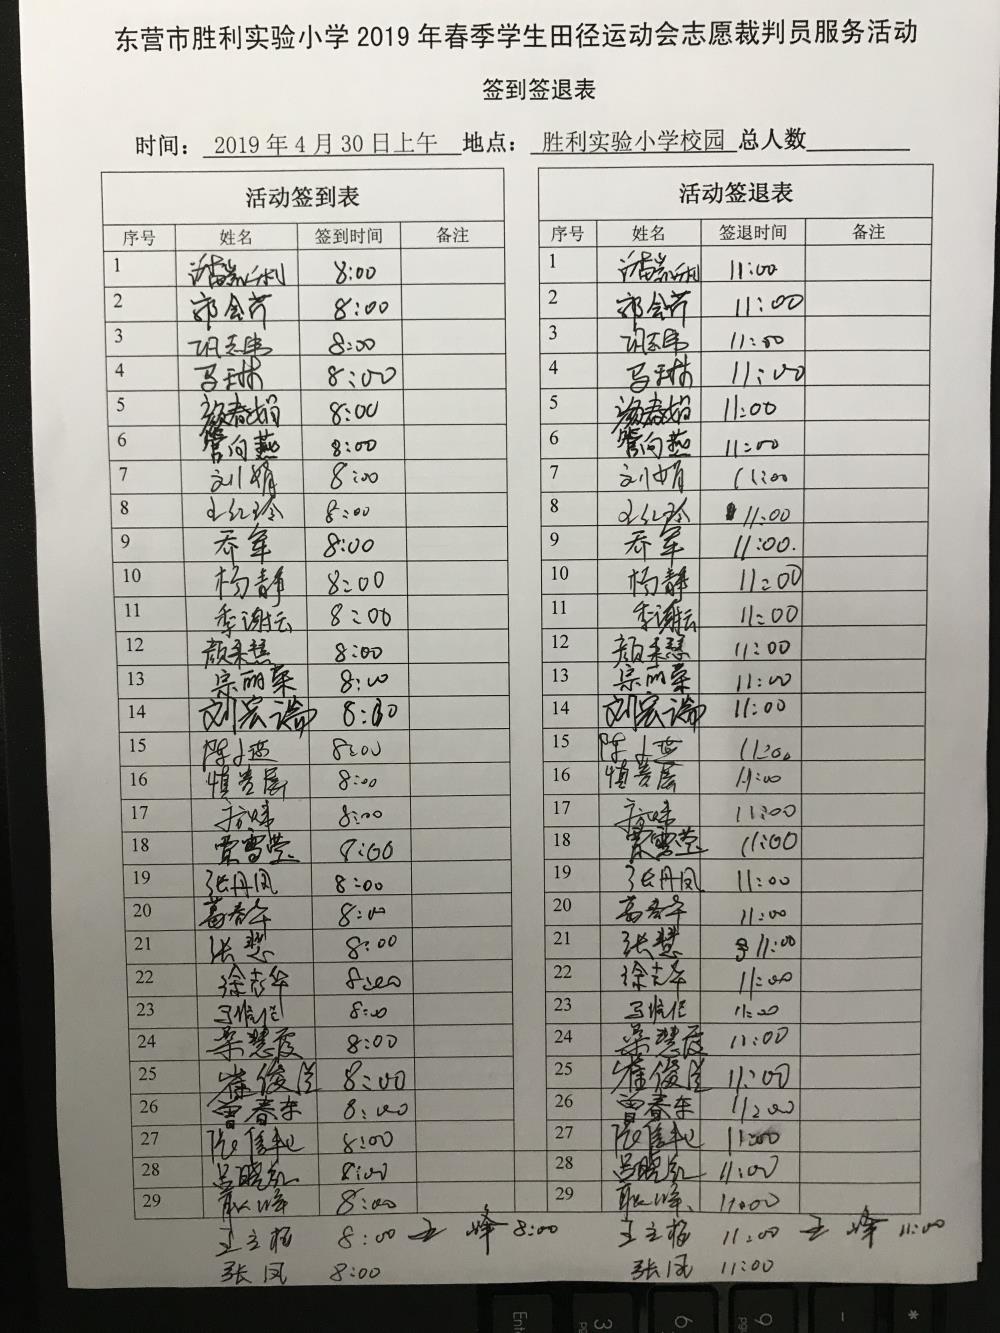 东营市胜利实验小学 2019 年春季学生田径运动会志愿裁判员服务活动
签到签退表
时间： 2019 年 4 月 30 日上午 地点： 胜利实验小学校园 总人数
活动签到表 活动签退表
序号 姓名 签到时间 备注 序号 姓名 签退时间 备注
1 8:00 1 11:00
2 郭金芹 8:00 2 郭金芹 11:00
3 巩志伟 8:00 3 巩志伟 11:00
4 马玉林 8:00 4 马玉林 11:00
5 颜春娟 8:00 5 颜春娟 11:00
6 管向燕 8:00 6 管向燕 11:00
7 刘娟 8:00 7 刘娟 11:00
8 王红玲 8:00 8 王红玲 11:00
9 乔军 8:00 9 乔军 11:00.
10 杨静 8:00 10 杨静 11:00
11 季谢云 8:00 11 季谢云 11:00
12 颜秉慧 8:00 12 颜秉慧 11:00
13 宗丽荣 8:00 13 宗丽荣 11:00
14 刘宏谕 8:00 14 刘宏谕 11:00
15 陈小燕 8:00 15 陈小燕 11:00
16 慎贵层 8:00 16 慎贵层 11:00
17 8:00 17 11:00
18 贾雪莹 8:00 18 贾雪莹 11:00
19 张丹凤 8:00 19 张丹凤 11:00
20 葛春华 8:00 20 葛春华 11:00
21 张慧 8:00 21 张慧 11:00
22 徐志华 8:00 22 徐志华 11:00
23 8:00 23 11:00
24 梁慧霞 8:00 24 梁慧霞 11:00
25 崔俊 8:00 25 崔俊 11:00
26 曹春东 8:00 26 曹春东 11:00
27 8:00 27 11:00
28 吕晓红 8:00 28 吕晓红 11:00
29 耿峰 8:00 29 耿峰 11:00
王立杨 8:00 王峰 8:00 王立杨 11:00 王峰 11:00
张凤 8:00 张凤 11:00
Ent 3 6 9 - *